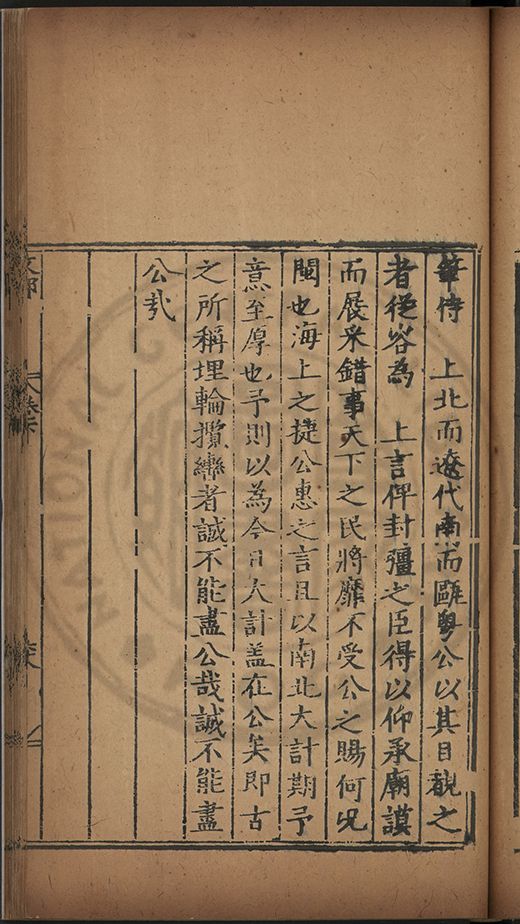 筆侍　上北而遼代南而甌粵公以其目覩之
者從容為　上言俾封疆之臣得以仰承廟謨
而展采錯事天下之民將靡不受公之賜何況
閩也海上之捷公惠之言且以南北大計期予
意至厚也予則以為今日大計盖在公矣即古
之所稱埋輪攬轡者誠不能盡公哉誠不能盡
公哉